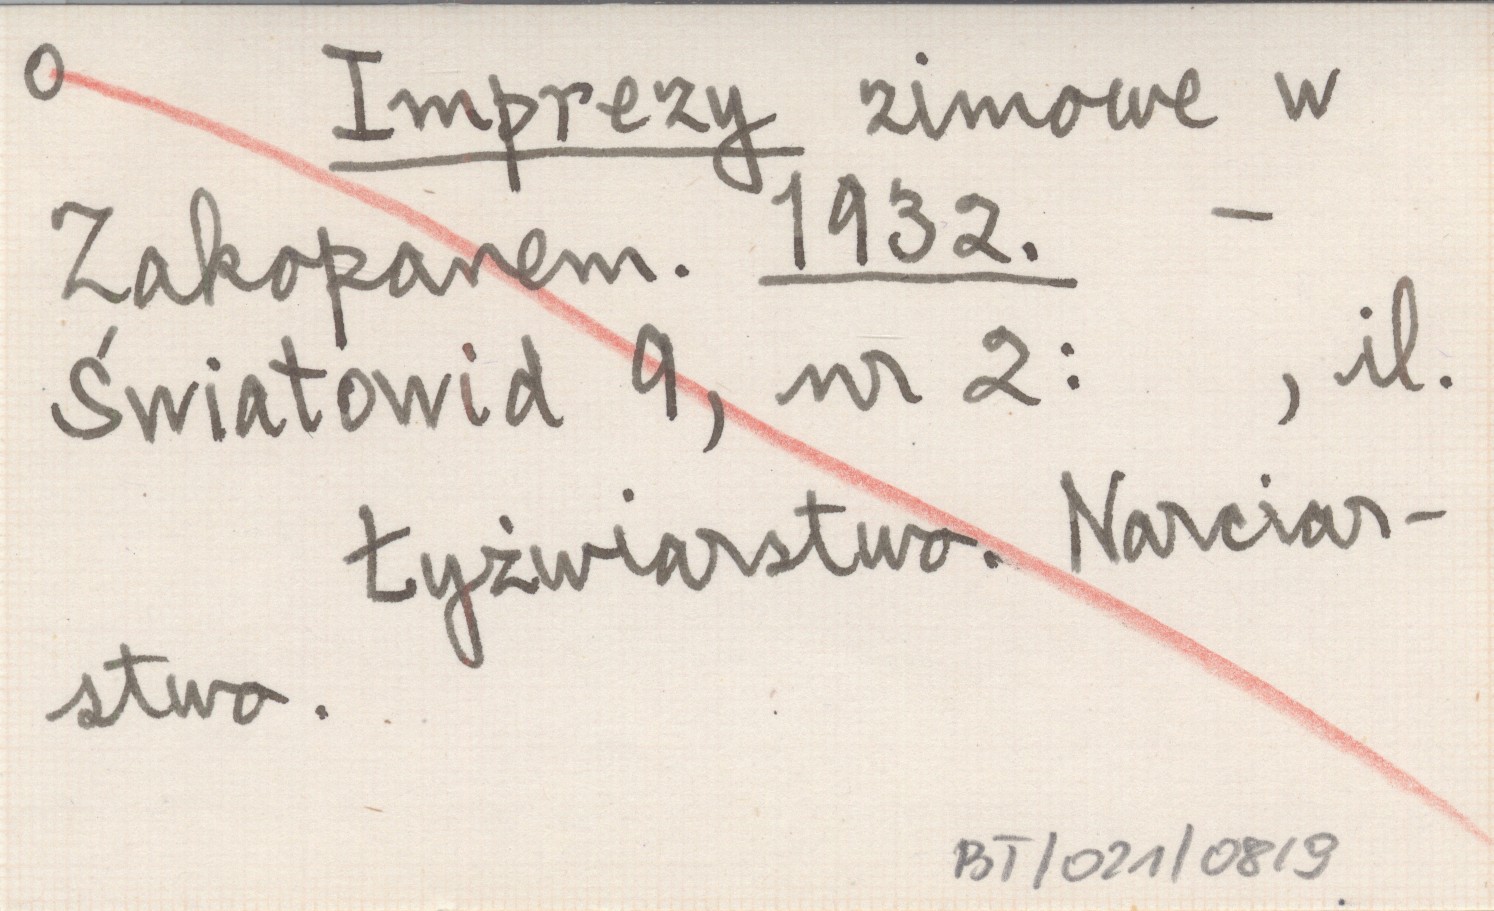 O Imprezy zimowe w
Zakopanem. 1932. –
Światowid 9, nr 2: , il.
Łyżwiarstwo. Narciar-
stwo.
BT/021/0819